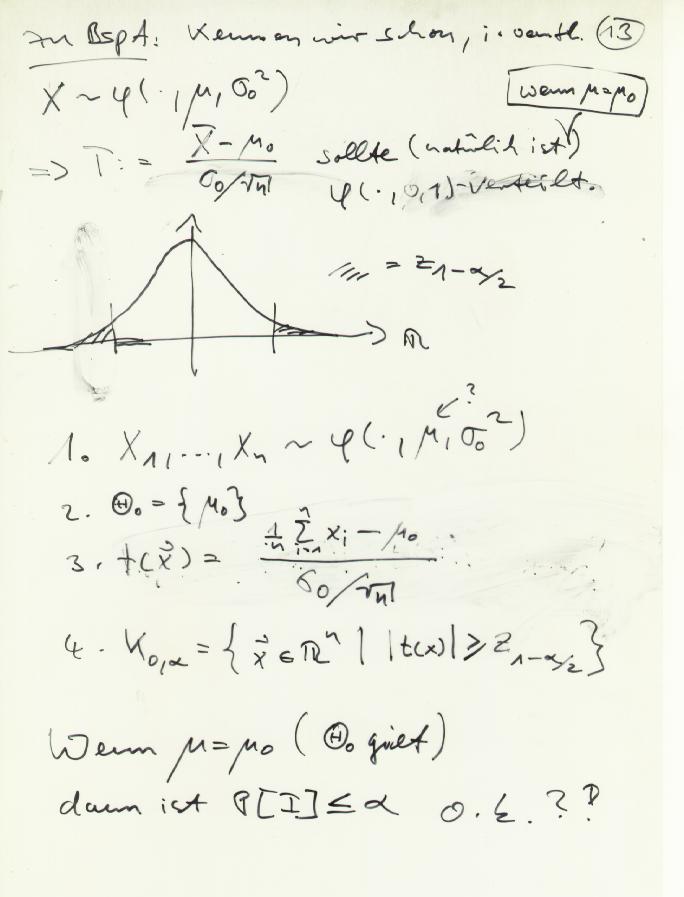 Zu Bsp A: Kennen wir schon, i. wesentl. (13)
X ~ φ(·, μ, σ₀²)
wenn μ=μ₀
=> T := (X̄ - μ₀) / (σ₀/√n) sollte (natürlich ist)
φ(·,0,1)-verteilt.
//// = z_{1-α/2}
ℝ
?
1. X₁,...,Xₙ ~ φ(·, μ, σ₀²)
2. Θ₀ = {μ₀}
3. t(x⃗) = (1/n Σ_{i=1}^{n} xᵢ - μ₀) / (σ₀/√n)
4. K_{0,α} = { x⃗ ∈ ℝⁿ | |t(x)| ≥ z_{1-α/2} }
Wenn μ=μ₀ (Θ₀ gilt)
dann ist P[I] ≤ α o.k. ??